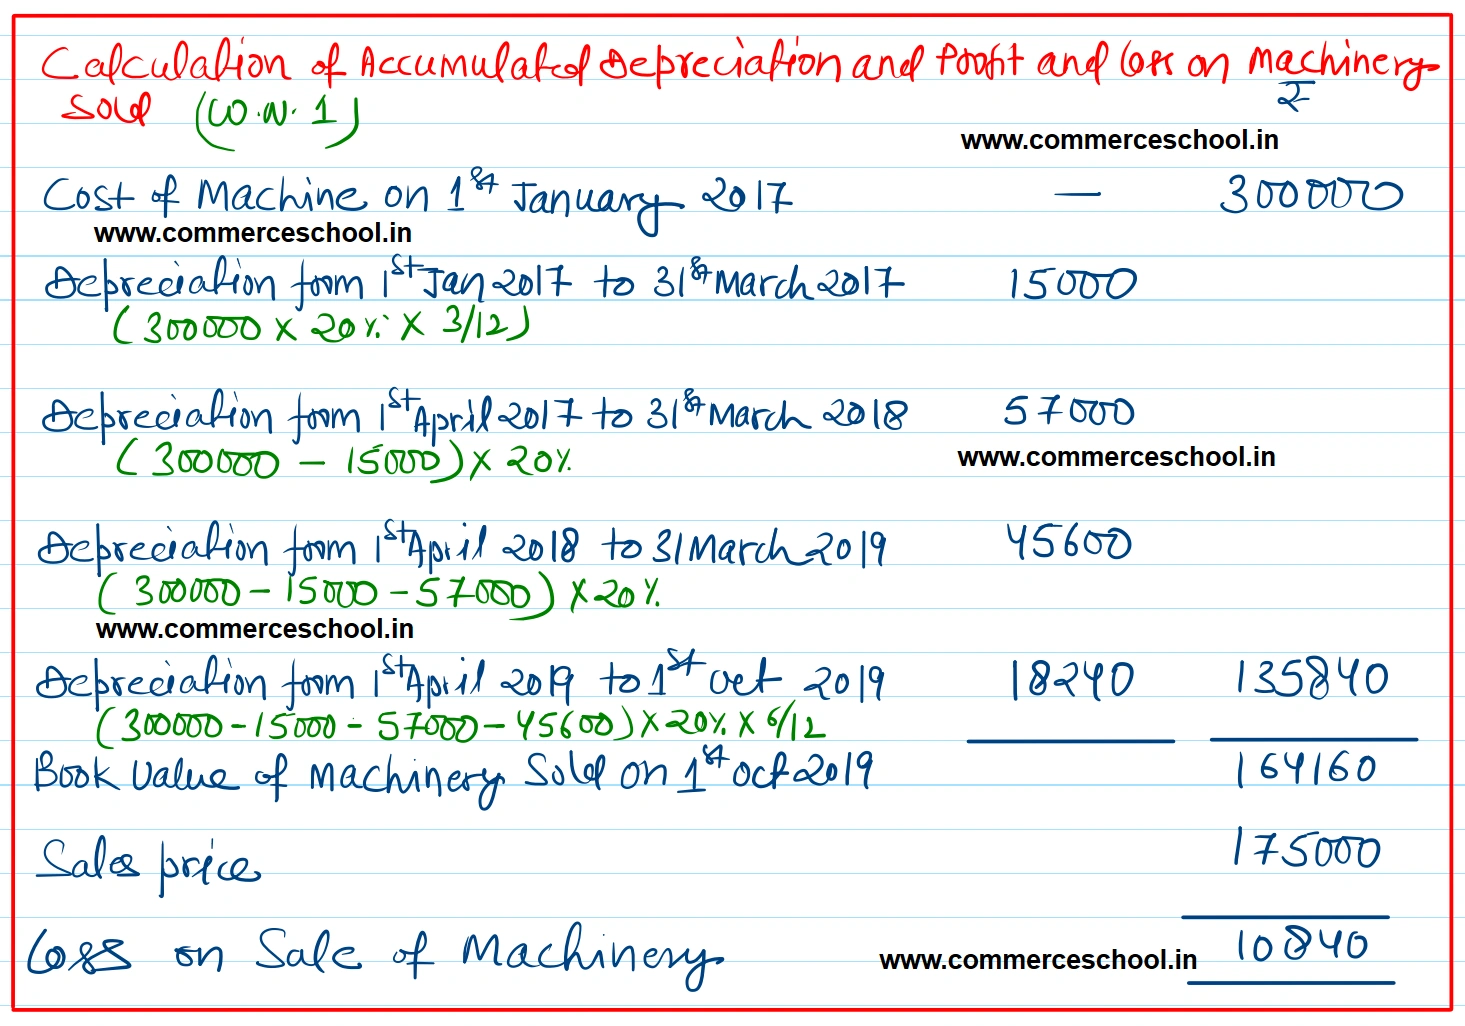 Calculation of Accumulated Depreciation and Profit and loss on Machinery
Sold (W.N. 1) ₹
www.commerceschool.in
Cost of Machine on 1st January 2017 — 300000
www.commerceschool.in
Depreciation from 1st Jan 2017 to 31st March 2017 15000
(300000 × 20% × 3/12)
Depreciation from 1st April 2017 to 31st March 2018 57000
(300000 - 15000) × 20%
www.commerceschool.in
Depreciation from 1st April 2018 to 31 March 2019 45600
(300000 - 15000 - 57000) × 20%
www.commerceschool.in
Depreciation from 1st April 2019 to 1st Oct 2019 18240 135840
(300000 - 15000 - 57000 - 45600) × 20% × 6/12
Book Value of Machinery Sold on 1st Oct 2019 164160
Sales price 175000
Loss on Sale of Machinery 10840
www.commerceschool.in